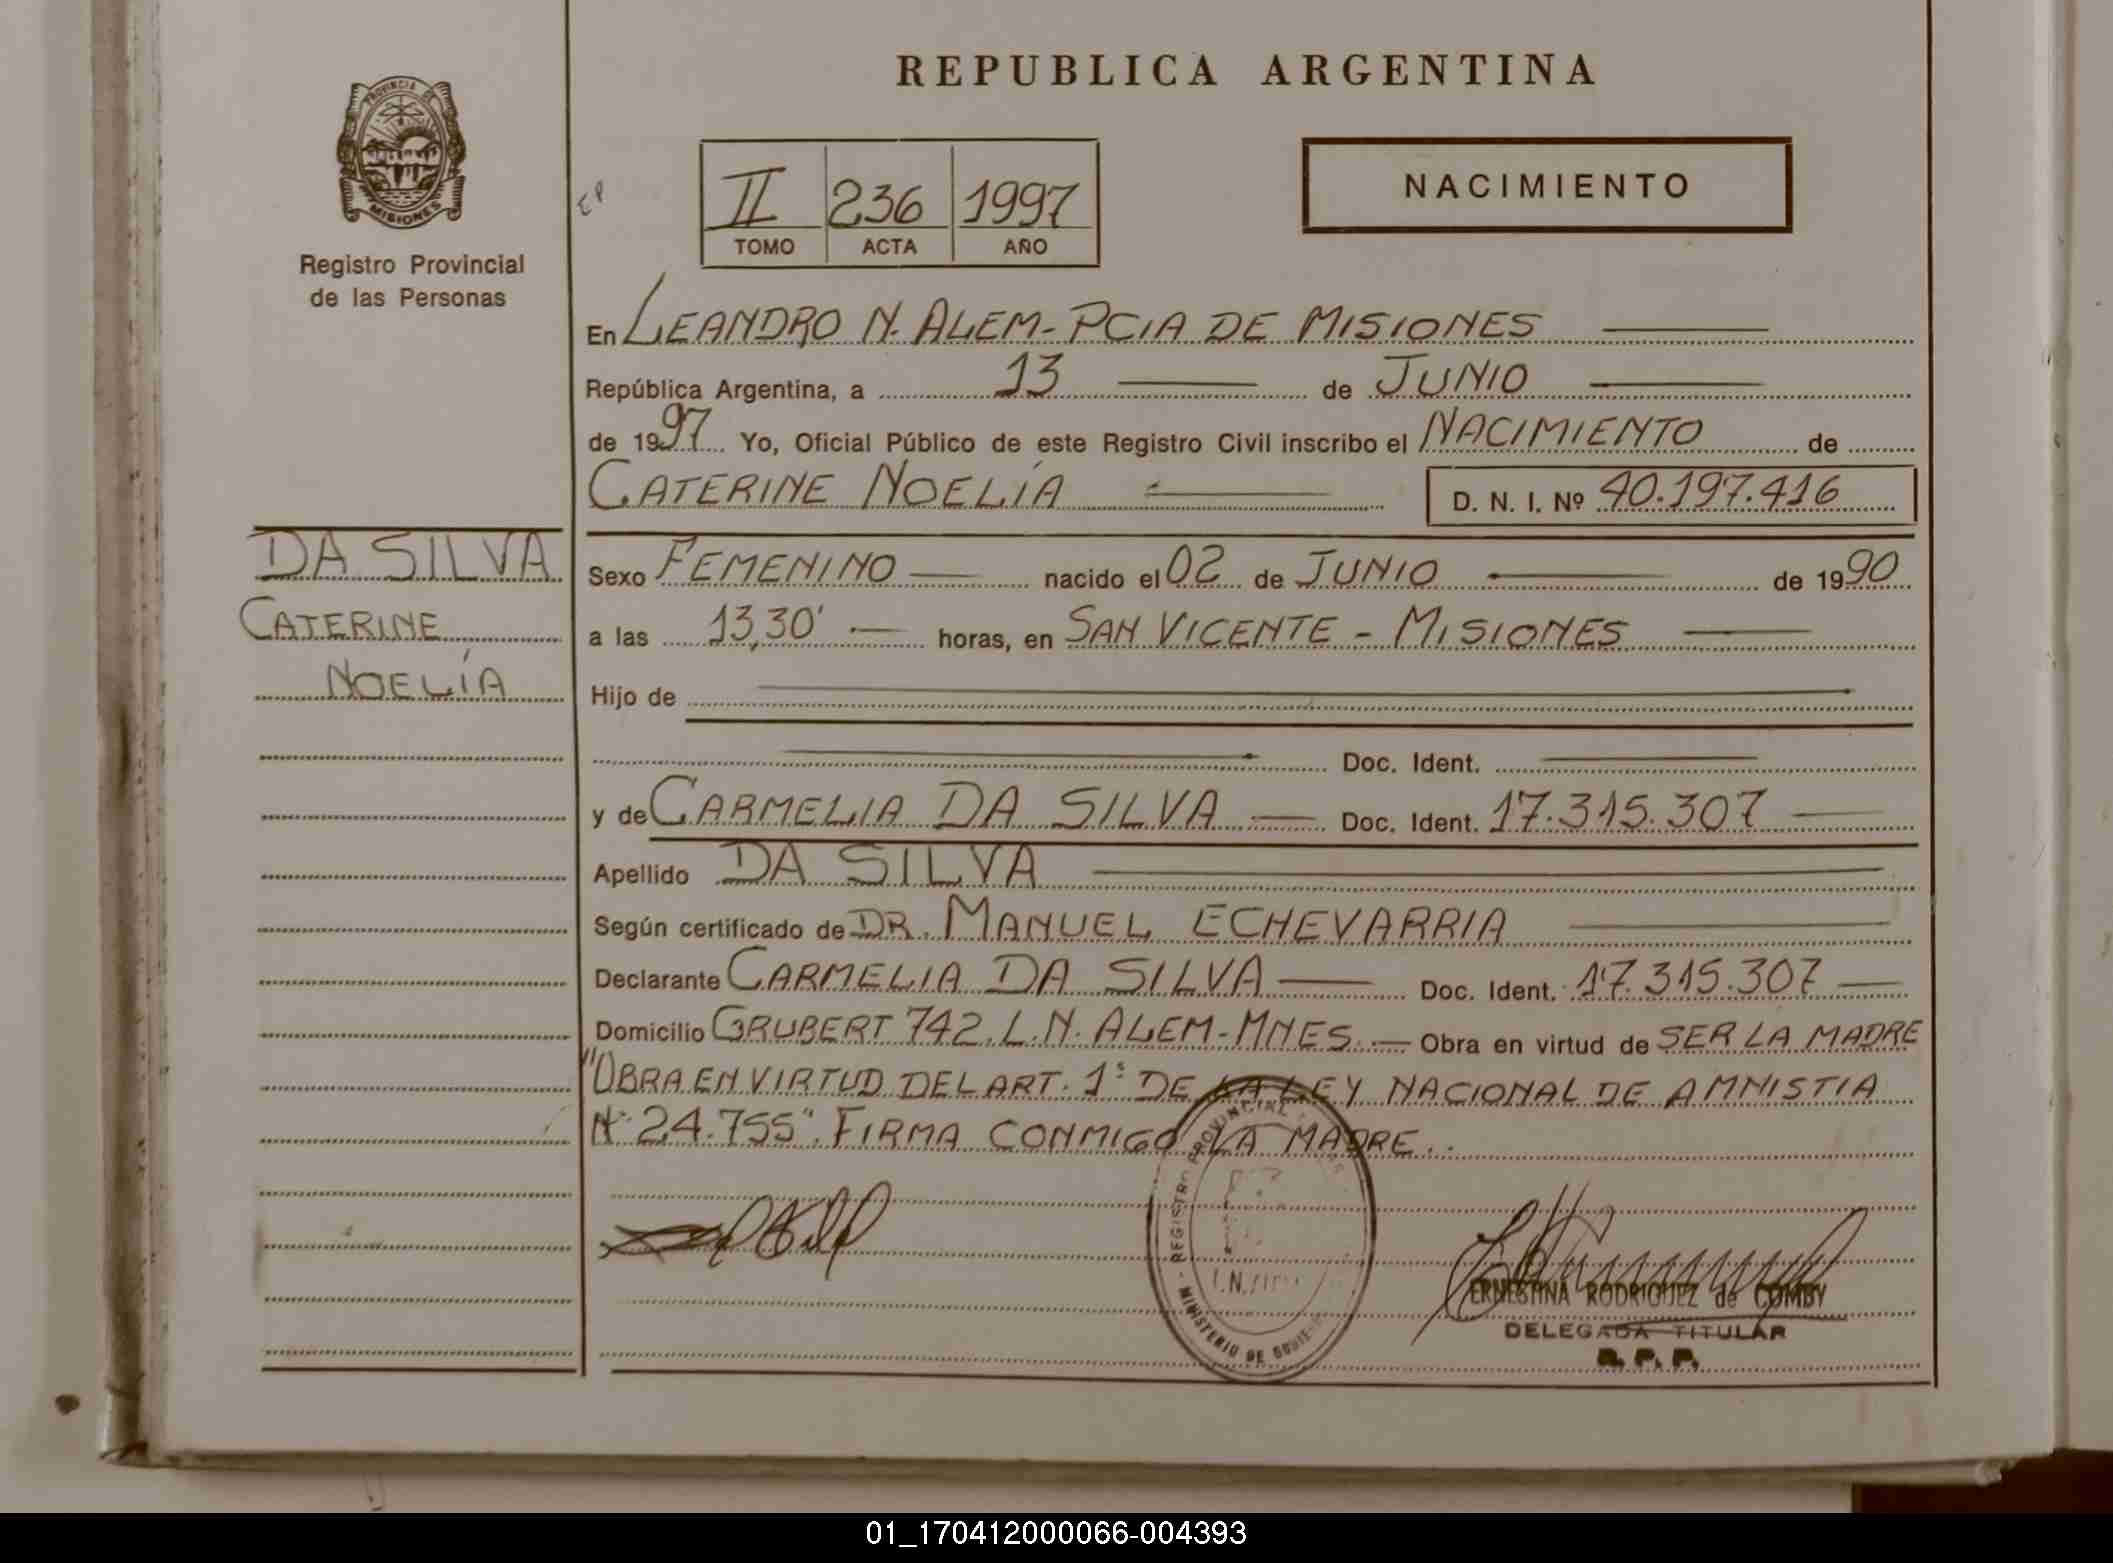 REPUBLICA ARGENTINA
PROVINCIA DE
MISIONES
Registro Provincial
de las Personas
EP
II 236 1997
TOMO ACTA AÑO
NACIMIENTO
En LEANDRO N. ALEM - PCIA DE MISIONES
República Argentina, a 13 de JUNIO
de 1997 Yo, Oficial Público de este Registro Civil inscribo el NACIMIENTO de
CATERINE NOELÍA D. N. I. Nº 40.197.416
DA SILVA
CATERINE
NOELÍA
Sexo FEMENINO nacido el 02 de JUNIO de 1990
a las 13,30' horas, en SAN VICENTE - MISIONES
Hijo de
Doc. Ident.
y de CARMELIA DA SILVA Doc. Ident. 17.315.307
Apellido DA SILVA
Según certificado de DR. MANUEL ECHEVARRIA
Declarante CARMELIA DA SILVA Doc. Ident. 17.315.307
Domicilio GRUBERT 742. L.N. ALEM - MNES. Obra en virtud de SER LA MADRE
"OBRA EN VIRTUD DEL ART. 1° DE LA LEY NACIONAL DE AMNISTIA
N° 24.755". FIRMA CONMIGO LA MADRE..
REGISTRO PROVINCIAL
MINISTERIO DE
ERNESTINA RODRIGUEZ de COMBY
DELEGADA TITULAR
R. P. P.
01_170412000066-004393